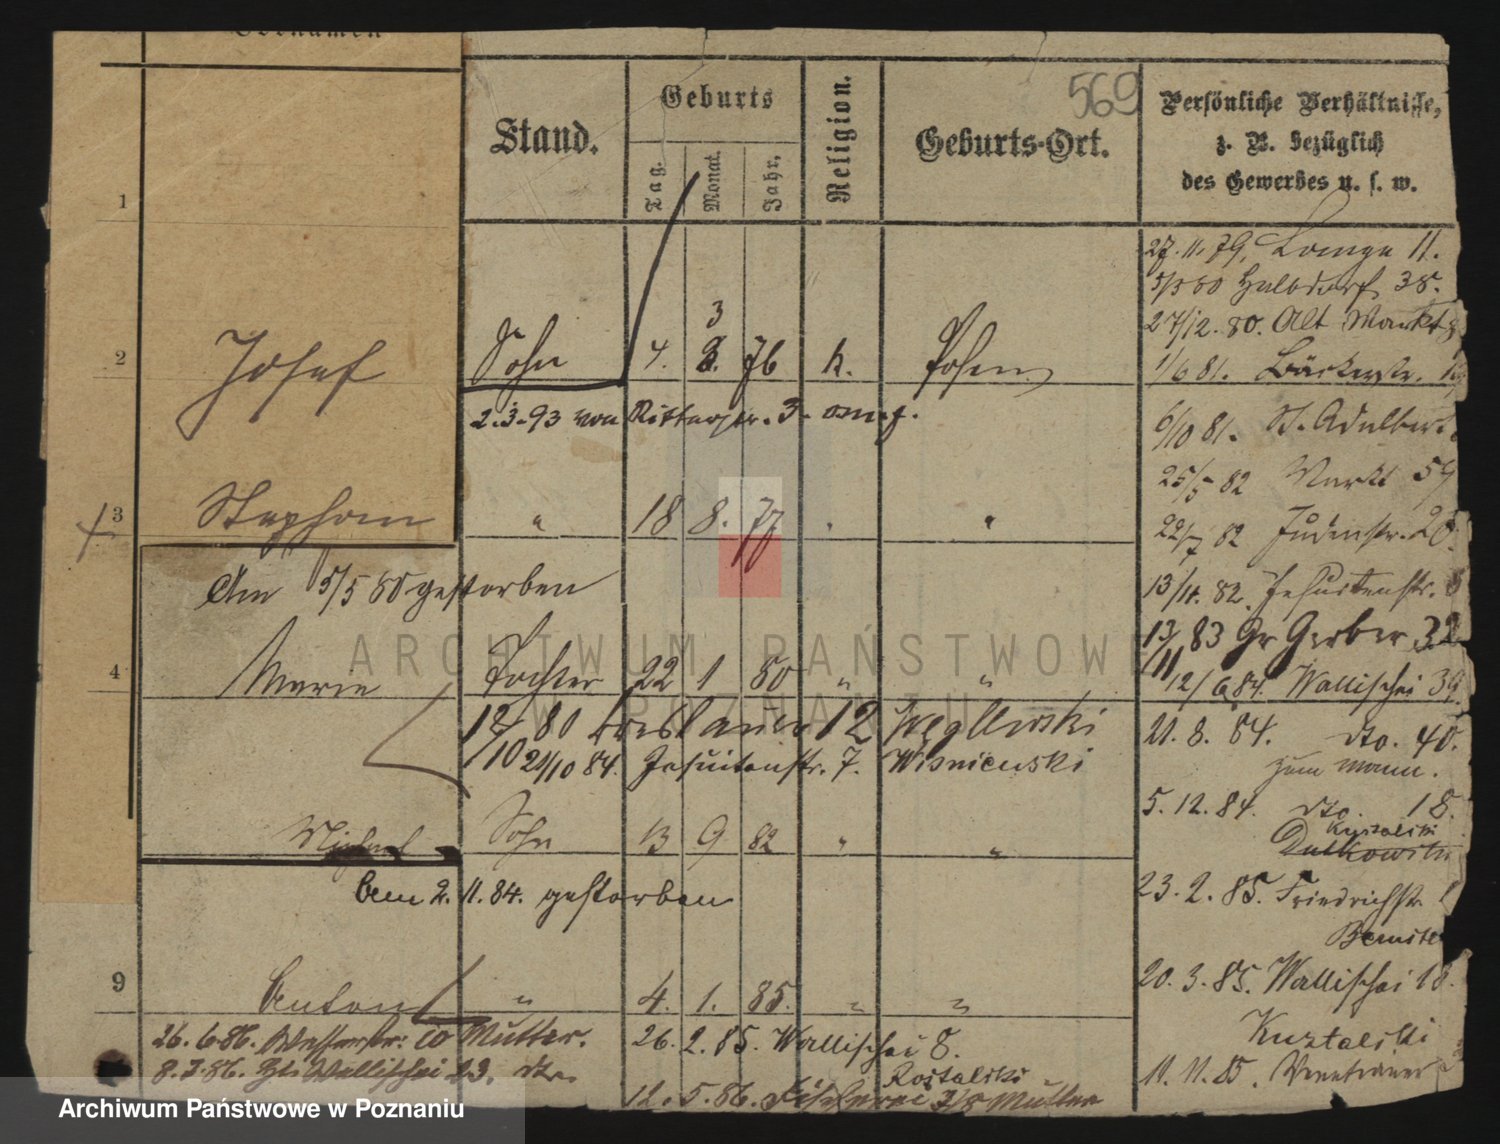 Vornamen
Stand.
Geburts
Tag.
Monat.
Jahr.
Religion.
Geburts-Ort.
569
Persönliche Verhältnisse,
z. B. bezüglich
des Gewerbes u. s. w.
1
27.11.79.
11.
5/3 80 Halbdorf 38.
27/12.80. Alt Markt
3
2 Josef Sohn 4. 76 k. Posen
1/6 81. Bäckerstr.
2.3.93 von Ritterstr. 3
6/10 81. St. Adalbert
25/5 82 Markt 59
3 Stephan " 18 8. 77 " "
22/7 82 Judenstr. 28.
Am 5/5 80 gestorben
13/11. 82. Jesuitenstr.
13/11 83 Gr Gerber 32
4 Marie Tochter 22 1 80 " "
12/6 84. Wallischei 39
12/10 80 Breslauer 12
21.8.84. dto. 40.
21/10 84. Jesuitenstr. 7. Wisniewski
zum Mann.
5.12.84. dto. 18.
Michael Sohn 13 9 82 " "
Dutkowski
am 2.11.84. gestorben
23.2.85. Friedrichstr.
9 Anton " 4. 1. 85. " "
20.3.85. Wallischei 18.
26.6.86. Wasserstr. Mutter.
26.2.85. Wallischei 8.
8.7.86. Wallischei 23. dto.
11.11.85. Venetianer
12.5.86. Fischerei Mutter
ARCHIWUM PAŃSTWOWE
W POZNANIU
Archiwum Państwowe w Poznaniu